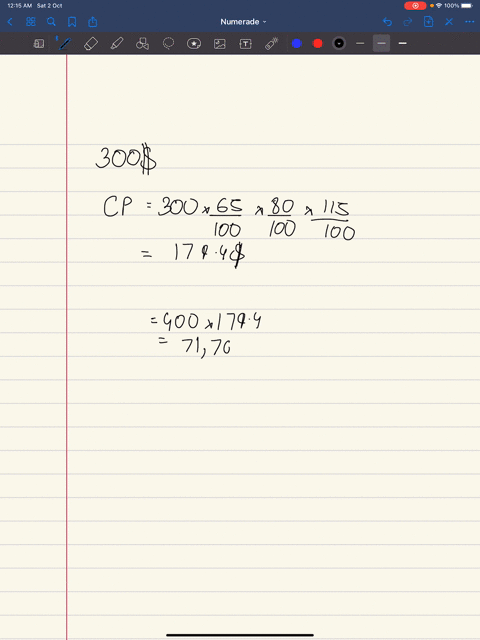 12:15 AM Sat 2 Oct
100%
Numerade
300$
CP = 300 × 65/100 × 80/100 × 115/100
= 179.4$
= 400 × 179.4
= 71,76